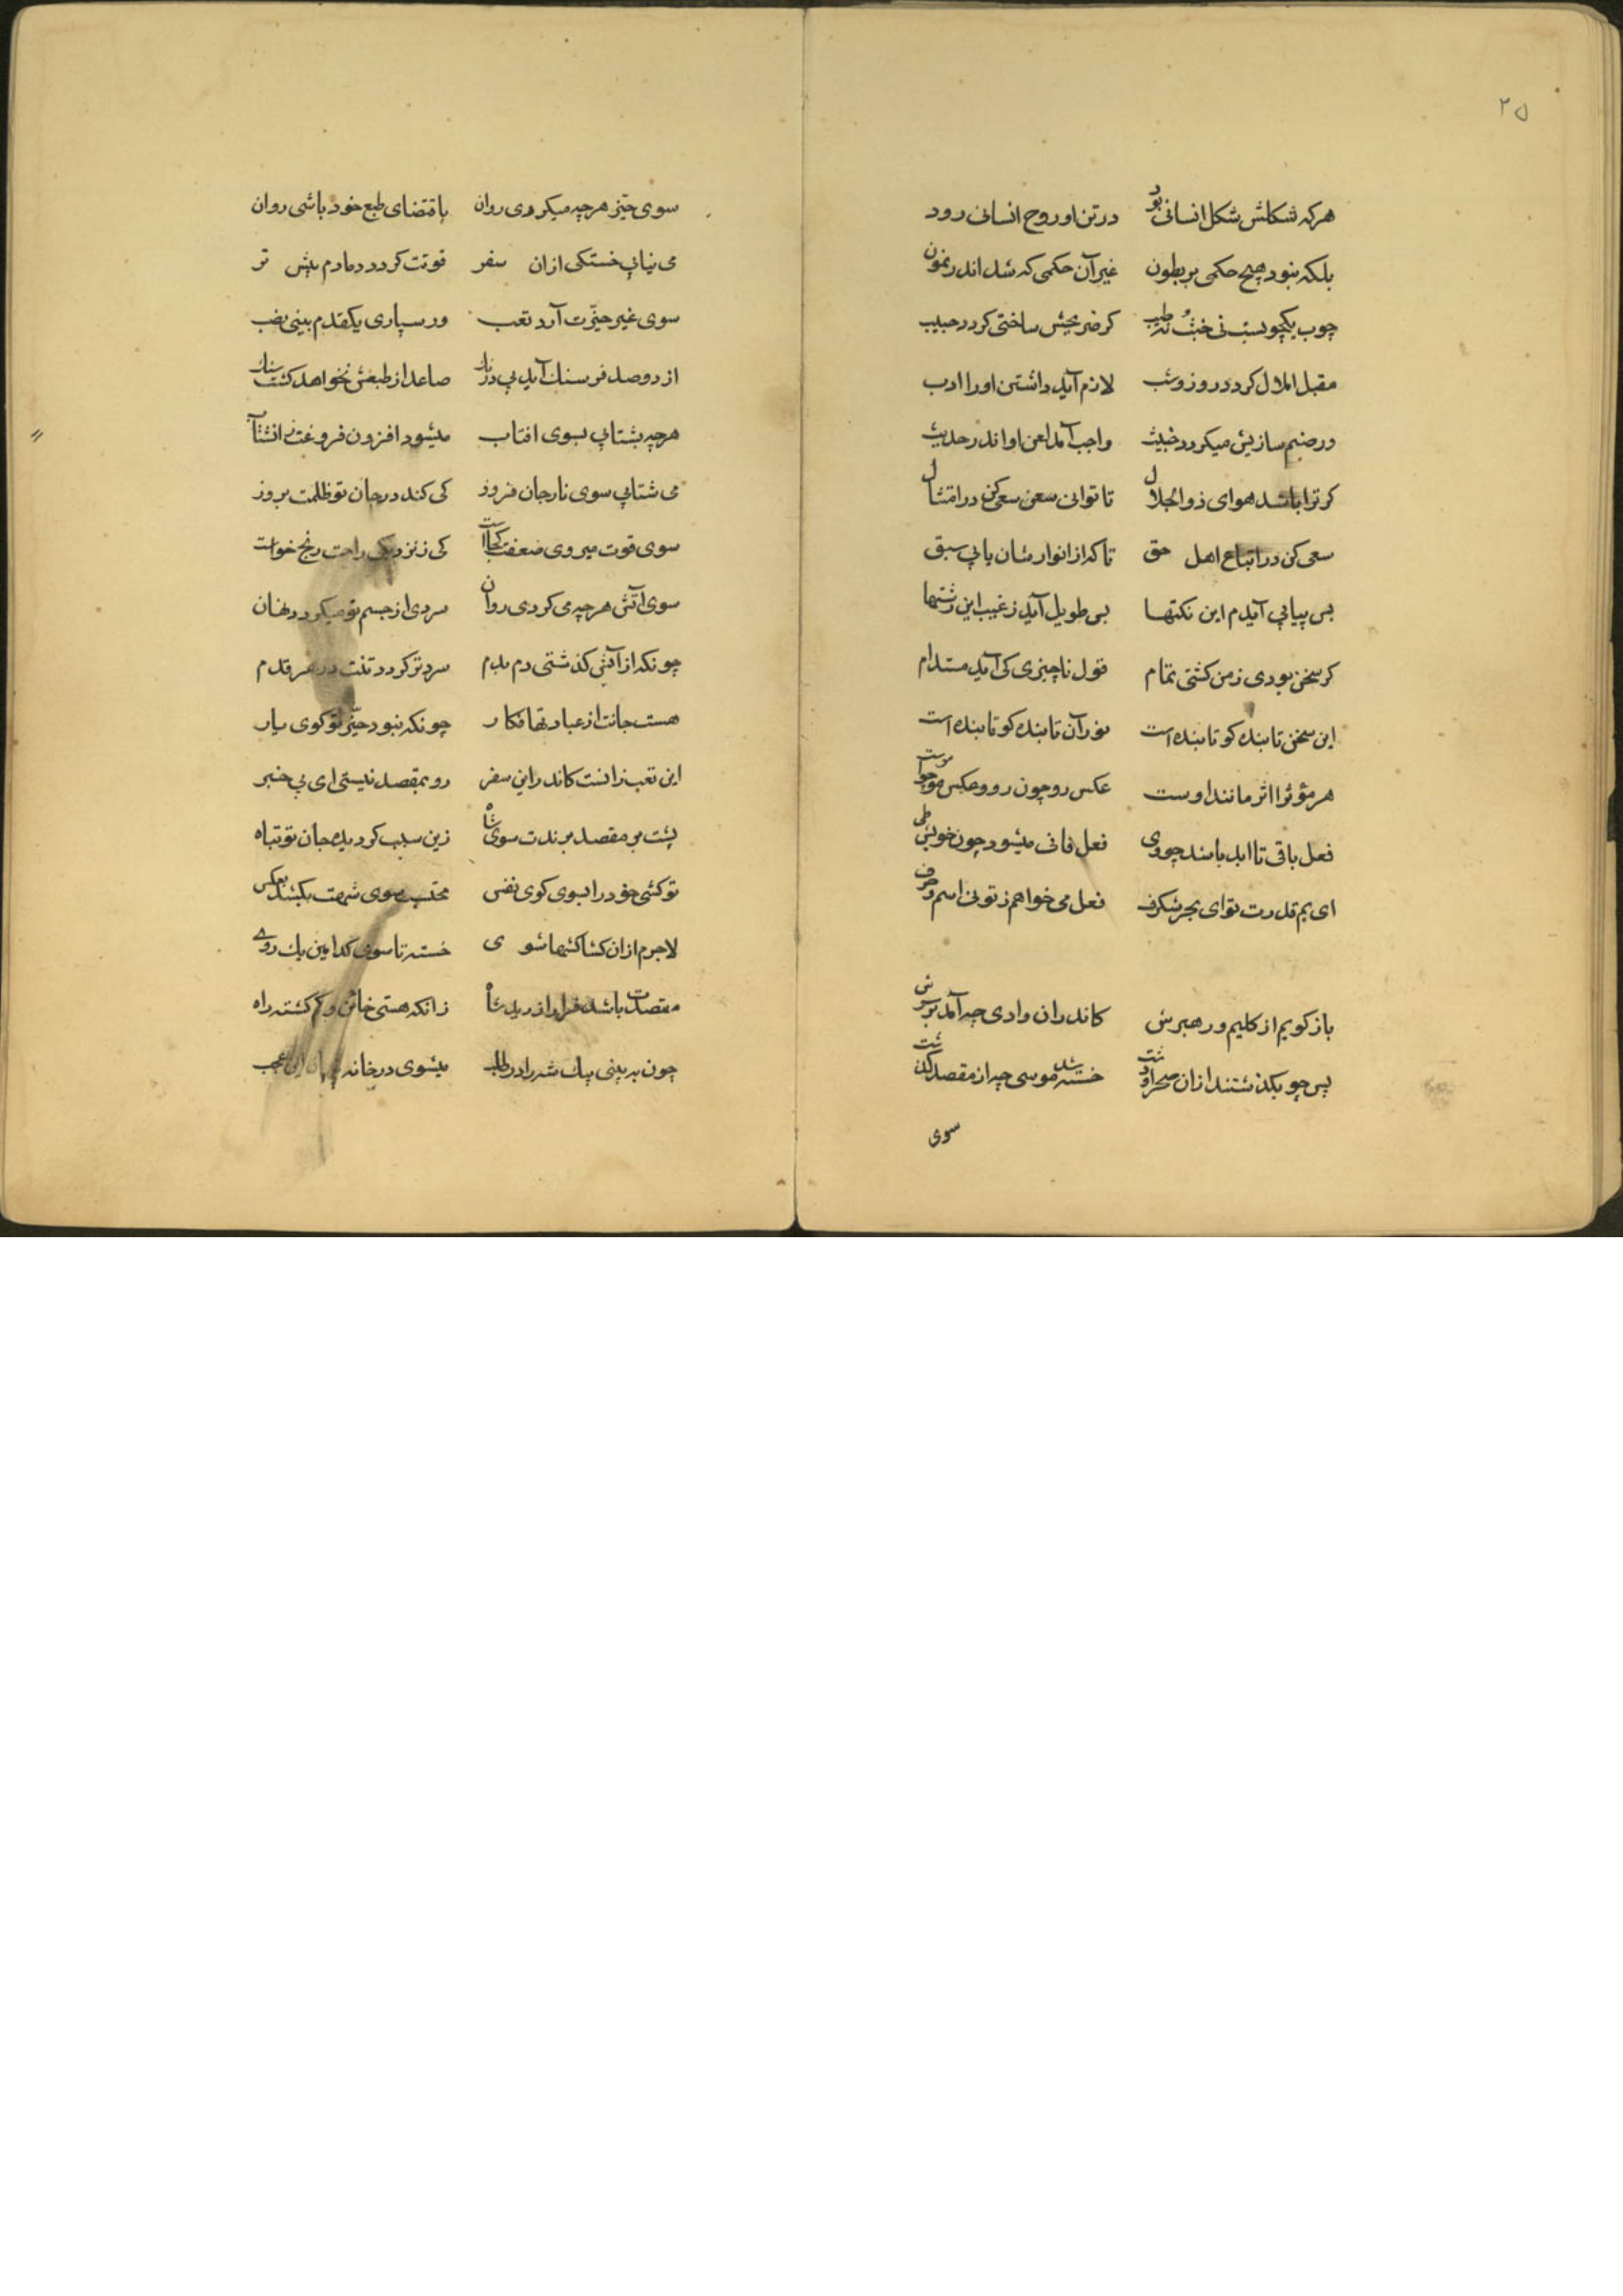 ۲۵
هرکه شکلش شکل انسانی بود در تن او روح انسانی رود
بلکه نبود هیچ حکمی بر بطون غیر آن حکمی که شد اندر نمون
چوب یکچوبست نی خبث نه طیب کر ضریحش ساختی کردد حبیب
مقبل املال کردد روز وشب لازم آید داشتن اورا ادب
ور صنم سازیش میکردد خبیث واجب آمد لعن او اندر حدیث
کر ترا باشد هوای ذو الجلال تا توانی سعی کن در امتثال
سعی کن در اتباع اهل حق تا که از انوارشان یابی سبق
بس پیاپی آیدم این نکتها بس طویل آید ز غیب این رشتها
کر سخن بودی ز من کشتی تمام قول ناچیزی کی آید مستدام
این سخن تابنده کو تابنده است نور آن تابنده کو تابنده است
هر مؤثر را اثر مانند اوست عکس رو چون رو و عکس مو چو موست
فعل باقی تا ابد باشد چو وی فعل فانی میشود چون خویش طی
ای یم قدرت توای بحر شکرف فعل می خواهم ز تو نی اسم وحرف
باز کویم از کلیم ور هبرش کاندران وادی چه آمد بر سرش
پس چو بکذشتند از آن صحرا ودشت خسته شد موسی چه از مقصد کذشت
سوی
سوی حیّز هرچه میکردی روان باقتضای طبع خود باشی روان
می نیابی خستکی ازان سفر قوتت کردد دمادم بیش تر
سوی غیر حیّزت آرد تعب ور سپاری یکقدم بینی نصب
از دوصد فرسنك آید بی درنك صاعد از طبعش نخواهد کشت سنك
هرچه بشتابی بسوی افتاب میشود افزون فروغت
می شتابی سوی نار جان فروز کی کند در جان تو ظلمت بروز
سوی قوت میروی ضعفت کجاست کی ز نزدیکی راحت رنج خواست
سوی آتش هرچه می کردی روان سردی از جسم تو میکردد نهان
چونکه از آتش کذشتی دم بدم سردتر کردد تنت در هر قدم
هست جانت از عبادتها فکار چونکه نبود حیّز تو کوی یار
این تعب زانست کاندر این سفر رو بمقصد نیستی ای بی خبر
پشت بر مقصد برندت سوی شاه زین سبب کردیده جان تو تباه
تو کشی خود را بسوی کوی نفس محتسب سوی شهت بکشد بعکس
لاجرم ازان کشاکشها شوی خسته تا سوی کدامین یك روی
مقصدت باشد فرار از دید شاه زانکه هستی خائن وکم کشته راه
چون به بینی پیك شه را در طلب میشوی در خانه پنهان ای عجب